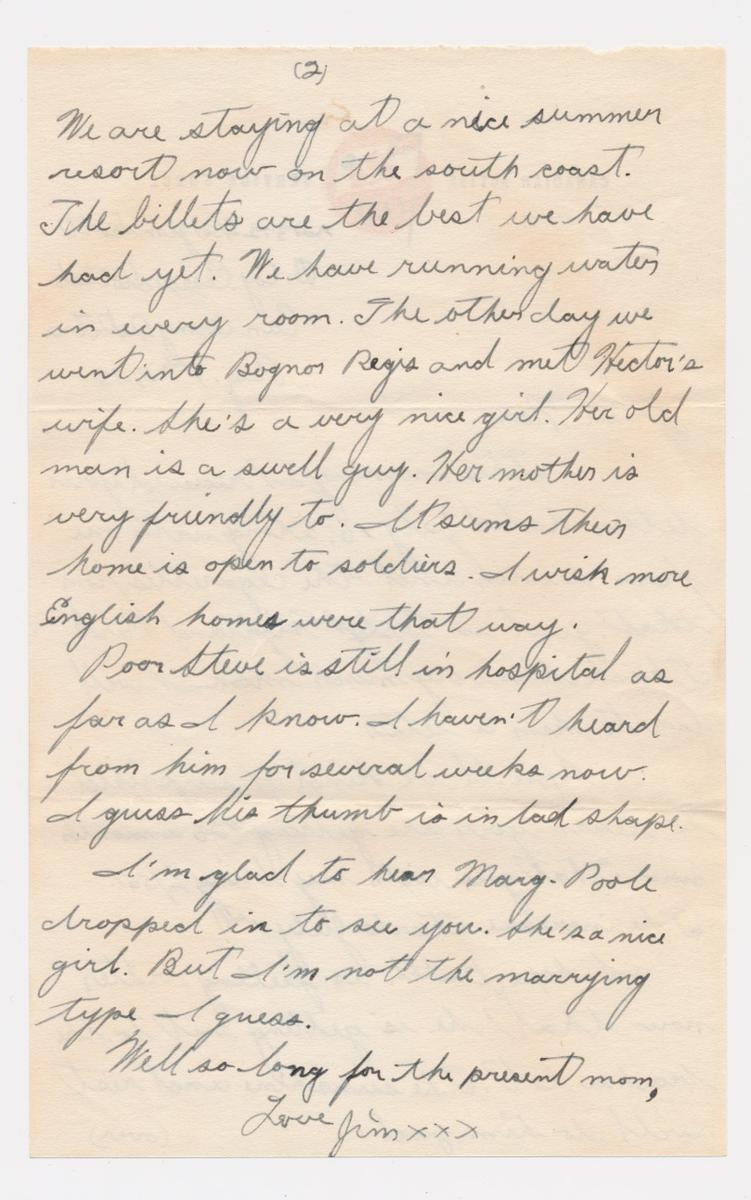 (2)
We are staying at a nice summer
resort now on the south coast.
The billets are the best we have
had yet. We have running water
in every room. The other day we
went into Bognor Regis and met Hector's
wife. She's a very nice girl. Her old
man is a swell guy. Her mother is
very friendly to. It seems their
home is open to soldiers. I wish more
English homes were that way.
Poor Steve is still in hospital as
far as I know. I haven't heard
from him for several weeks now.
I guess his thumb is in bad shape.
I'm glad to hear Marg. Poole
dropped in to see you. She's a nice
girl. But I'm not the marrying
type I guess.
Well so long for the present mom,
Love Jim xxx